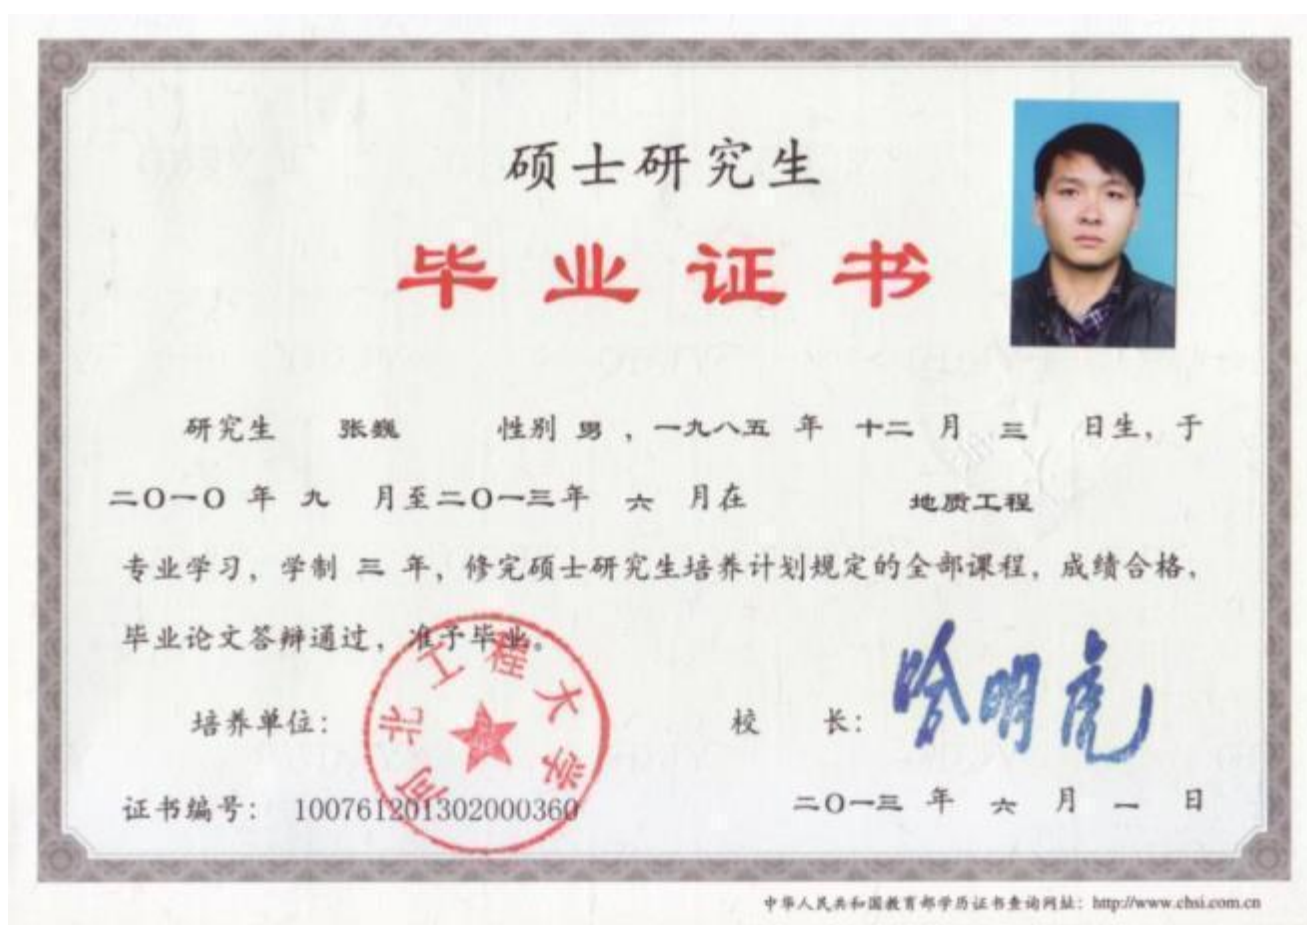 硕士研究生
毕业证书
研究生 张巍 性别 男 ，一九八五 年 十二 月 三 日生，于
二O一O 年 九 月至二O一三年 六 月在 地质工程
专业学习，学制 三 年，修完硕士研究生培养计划规定的全部课程，成绩合格，
毕业论文答辩通过，准予毕业。
河北工程大学
培养单位： 校 长：哈明虎
证书编号： 100761201302000360 二O一三 年 六 月 一 日
中华人民共和国教育部学历证书查询网址：http://www.chsi.com.cn